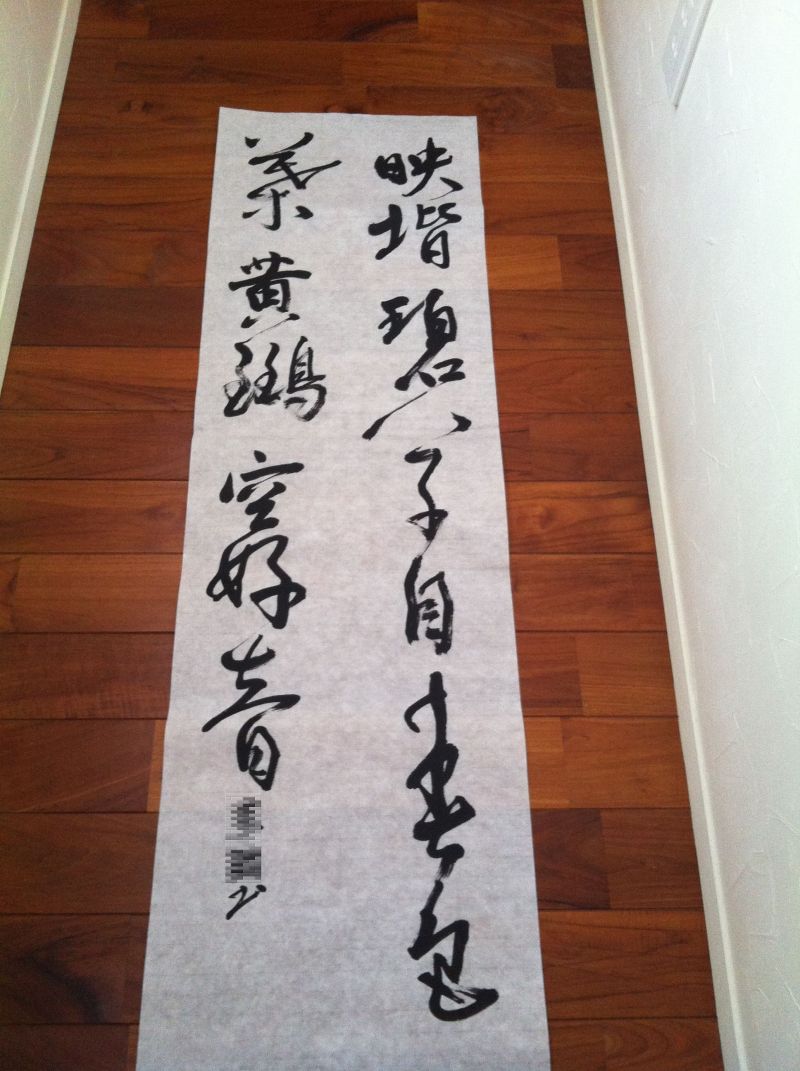 映堦碧草自春色
葉黄鸝空好音
書